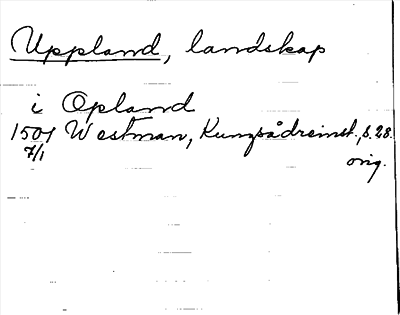 Uppland, landskap
i Opland
1501 Westman, Kungsådreinst., s. 28.
7/1 orig.